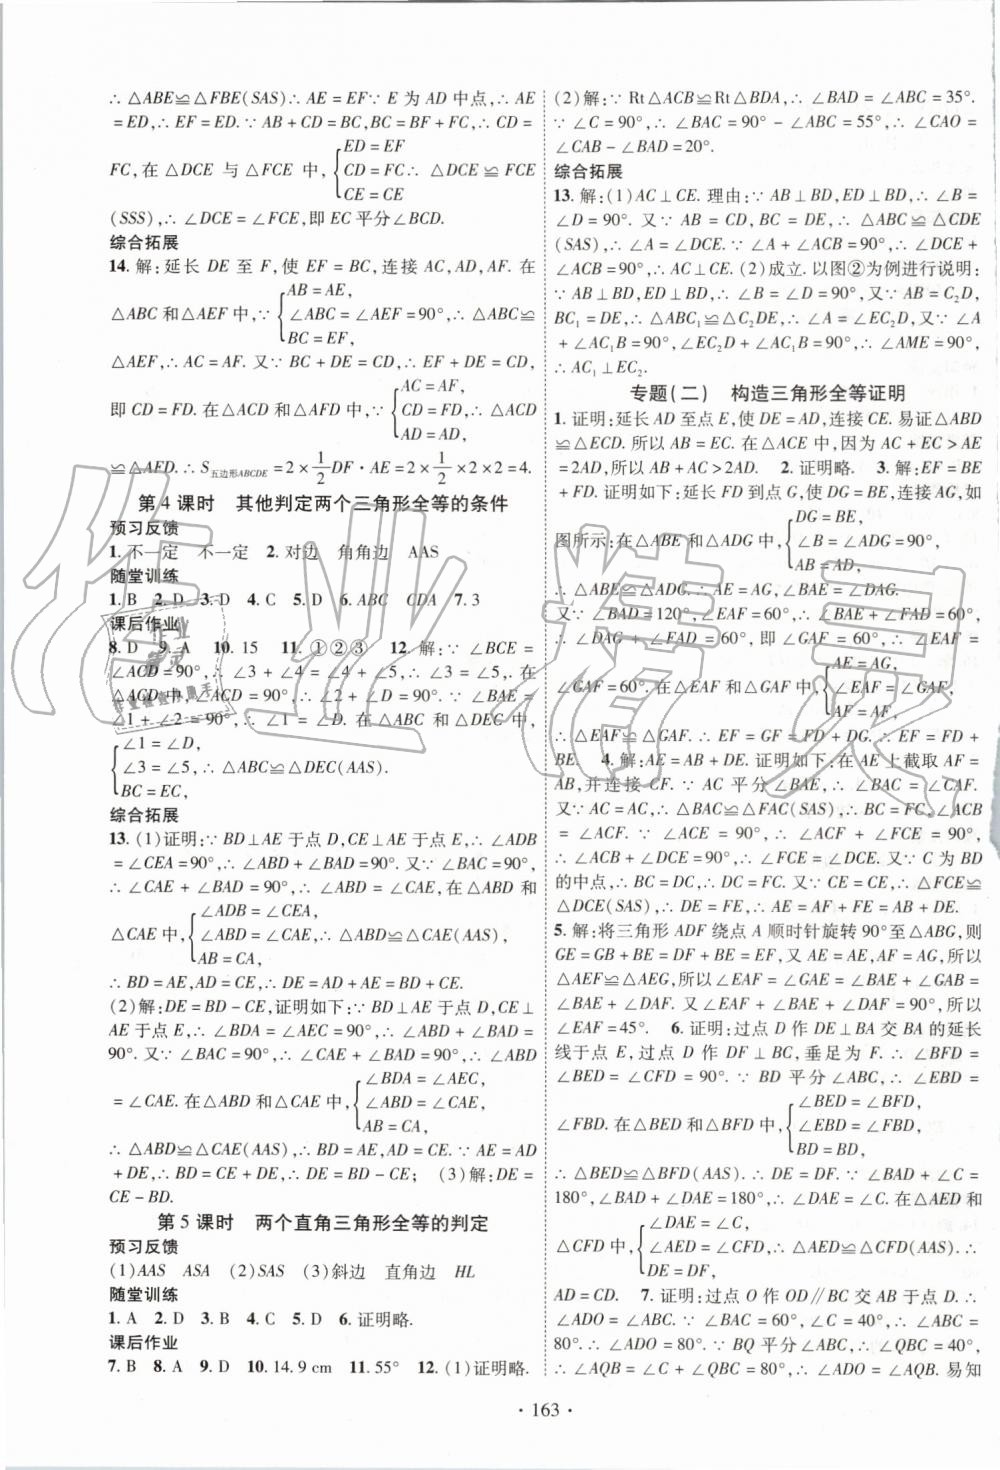 ∴△ABE≌△FBE(SAS)∴AE=EF∵E为AD中点,∴AE
=ED,∴EF=ED.∵AB+CD=BC,BC=BF+FC,∴CD=
ED=EF
FC,在△DCE与△FCE中,CD=FC∴△DCE≌FCE
CE=CE
(SSS),∴∠DCE=∠FCE,即EC平分∠BCD.
综合拓展
14.解:延长DE至F,使EF=BC,连接AC,AD,AF.在
AB=AE,
△ABC和△AEF中,∵∠ABC=∠AEF=90°,∴△ABC≌
BC=EF,
△AEF,∴AC=AF.又∵BC+DE=CD,∴EF+DE=CD,
AC=AF,
即CD=FD.在△ACD和△AFD中,∵CD=FD,∴△ACD
AD=AD,
≌△AFD.∴S五边形ABCDE=2×1/2DF·AE=2×1/2×2×2=4.
第4课时 其他判定两个三角形全等的条件
预习反馈
1.不一定 不一定 2.对边 角角边 AAS
随堂训练
1.B 2.D 3.D 4.C 5.D 6.ABC CDA 7.3
课后作业
8.D 9.A 10.15 11.①②③ 12.解:∵∠BCE=
∠ACD=90°,∴∠3+∠4=∠4+∠5,∴∠3=∠5,.在
△ACD中,∠ACD=90°,∴∠2+∠D=90°.∵∠BAE=
∠1+∠2=90°,∴∠1=∠D.在△ABC和△DEC中,
∠1=∠D,
∠3=∠5,∴△ABC≌△DEC(AAS).
BC=EC,
综合拓展
13.(1)证明:∵BD⊥AE于点D,CE⊥AE于点E,∴∠ADB
=∠CEA=90°,∴∠ABD+∠BAD=90°.又∵∠BAC=90°,
∴∠CAE+∠BAD=90°,∴∠ABD=∠CAE,在△ABD和
∠ADB=∠CEA,
△CAE中,∠ABD=∠CAE,∴△ABD≌△CAE(AAS),
AB=CA,
∴BD=AE,AD=CE,∴DE=AD+AE=BD+CE.
(2)解:DE=BD-CE,证明如下:∵BD⊥AE于点D,CE⊥
AE于点E,∴∠BDA=∠AEC=90°,∴∠ABD+∠BAD=
90°.又∵∠BAC=90°,∴∠CAE+∠BAD=90°,∴∠ABD
∠BDA=∠AEC,
=∠CAE.在△ABD和△CAE中,∠ABD=∠CAE,
AB=CA,
∴△ABD≌△CAE(AAS),∴BD=AE,AD=CE.∵AE=AD
+DE,∴BD=CE+DE,∴DE=BD-CE; (3)解:DE=
CE-BD.
第5课时 两个直角三角形全等的判定
预习反馈
(1)AAS ASA (2)SAS (3)斜边 直角边 HL
随堂训练
1.A 2.D 3.B 4.C 5.D 6.证明略.
课后作业
7.B 8.A 9.D 10.14.9 cm 11.55° 12.(1)证明略.
(2)解:∵Rt△ACB≌Rt△BDA,∴∠BAD=∠ABC=35°.
∵∠C=90°,∴∠BAC=90°-∠ABC=55°,∴∠CAO=
∠CAB-∠BAD=20°.
综合拓展
13.解:(1)AC⊥CE.理由:∵AB⊥BD,ED⊥BD,∴∠B=
∠D=90°.又∵AB=CD,BC=DE,∴△ABC≌△CDE
(SAS),∴∠A=∠DCE.∵∠A+∠ACB=90°,∴∠DCE+
∠ACB=90°,∴AC⊥CE.(2)成立.以图②为例进行说明:
∵AB⊥BD,ED⊥BD,∴∠B=∠D=90°,又∵AB=C₂D,
BC₁=DE,∴△ABC₁≌△C₂DE,∴∠A=∠EC₂D,又∵∠A
+∠AC₁B=90°,∴∠EC₂D+∠AC₁B=90°,∴∠AME=90°,
∴AC₁⊥EC₂.
专题(二) 构造三角形全等证明
1.证明:延长AD至点E,使DE=AD,连接CE.易证△ABD
≌△ECD.所以AB=EC.在△ACE中,因为AC+EC>AE
=2AD,所以AB+AC>2AD. 2.证明略. 3.解:EF=BE
+FD.证明如下:延长FD到点G,使DG=BE,连接AG,如
DG=BE,
图所示:在△ABE和△ADG中,∠B=∠ADG=90°,
AB=AD,
∴△ABE≌△ADG.∴AE=AG,∠BAE=∠DAG.
又∵∠BAD=120°,∠EAF=60°,∴∠BAE+∠FAD=60°,
∴∠DAG+∠FAD=60°,即∠GAF=60°,∴∠EAF=
AE=AG,
∠GAF=60°.在△EAF和△GAF中,∠EAF=∠GAF,
AF=AF,
∴△EAF≌△GAF.∴EF=GF=FD+DG.∴EF=FD+
BE. 4.解:AE=AB+DE.证明如下:在AE上截取AF=
AB,并连接CF.∵AC平分∠BAE,∴∠BAC=∠CAF.
又∵AC=AC,∴△BAC≌△FAC(SAS),∴BC=FC,∠ACB
=∠ACF.又∵∠ACE=90°,∴∠ACF+∠FCE=90°,
∴∠ACB+∠DCE=90°,∴∠FCE=∠DCE.又∵C为BD
的中点,∴BC=DC,∴DC=FC.又∵CE=CE,∴△FCE≌
△DCE(SAS),∴DE=FE,∴AE=AF+FE=AB+DE.
5.解:将三角形ADF绕点A顺时针旋转90°至△ABG,则
GE=GB+BE=DF+BE=EF,又AE=AE,AF=AG,所以
△AEF≌△AEG,所以∠EAF=∠GAE=∠BAE+∠GAB
=∠BAE+∠DAF.又∠EAF+∠BAE+∠DAF=90°,所以
∠EAF=45°. 6.证明:过点D作DE⊥BA交BA的延长
线于点E,过点D作DF⊥BC,垂足为F.∴∠BFD=
∠BED=∠CFD=90°.∵BD平分∠ABC,∴∠EBD=
∠BED=∠BFD,
∠FBD.在△BED和△BFD中,∠EBD=∠FBD,
BD=BD,
∴△BED≌△BFD(AAS).∴DE=DF.∵∠BAD+∠C=
180°,∠BAD+∠DAE=180°,∴∠DAE=∠C.在△AED和
∠DAE=∠C,
△CFD中,∠AED=∠CFD,∴△AED≌△CFD(AAS).∴
DE=DF,
AD=CD. 7.证明:过点O作OD∥BC交AB于点D.∴
∠ADO=∠ABC.∵∠BAC=60°,∠C=40°,∴∠ABC=
80°.∴∠ADO=80°.∵BQ平分∠ABC,∴∠QBC=40°.
∴∠AQB=∠C+∠QBC=80°,∴∠ADO=∠AQB.易知
·163·